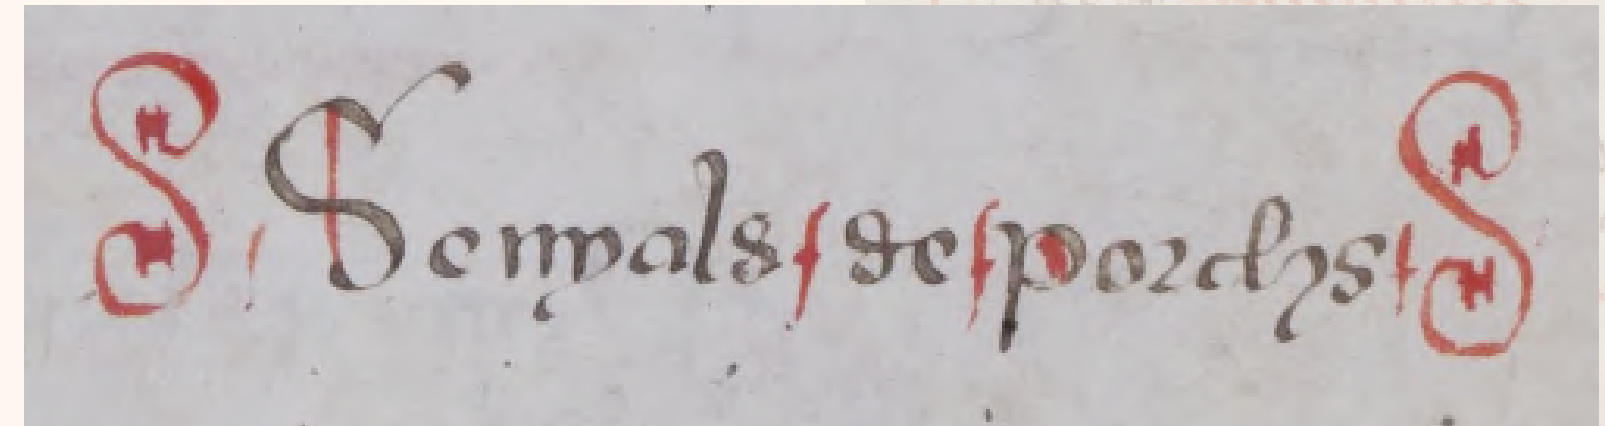 Senyals de porchs